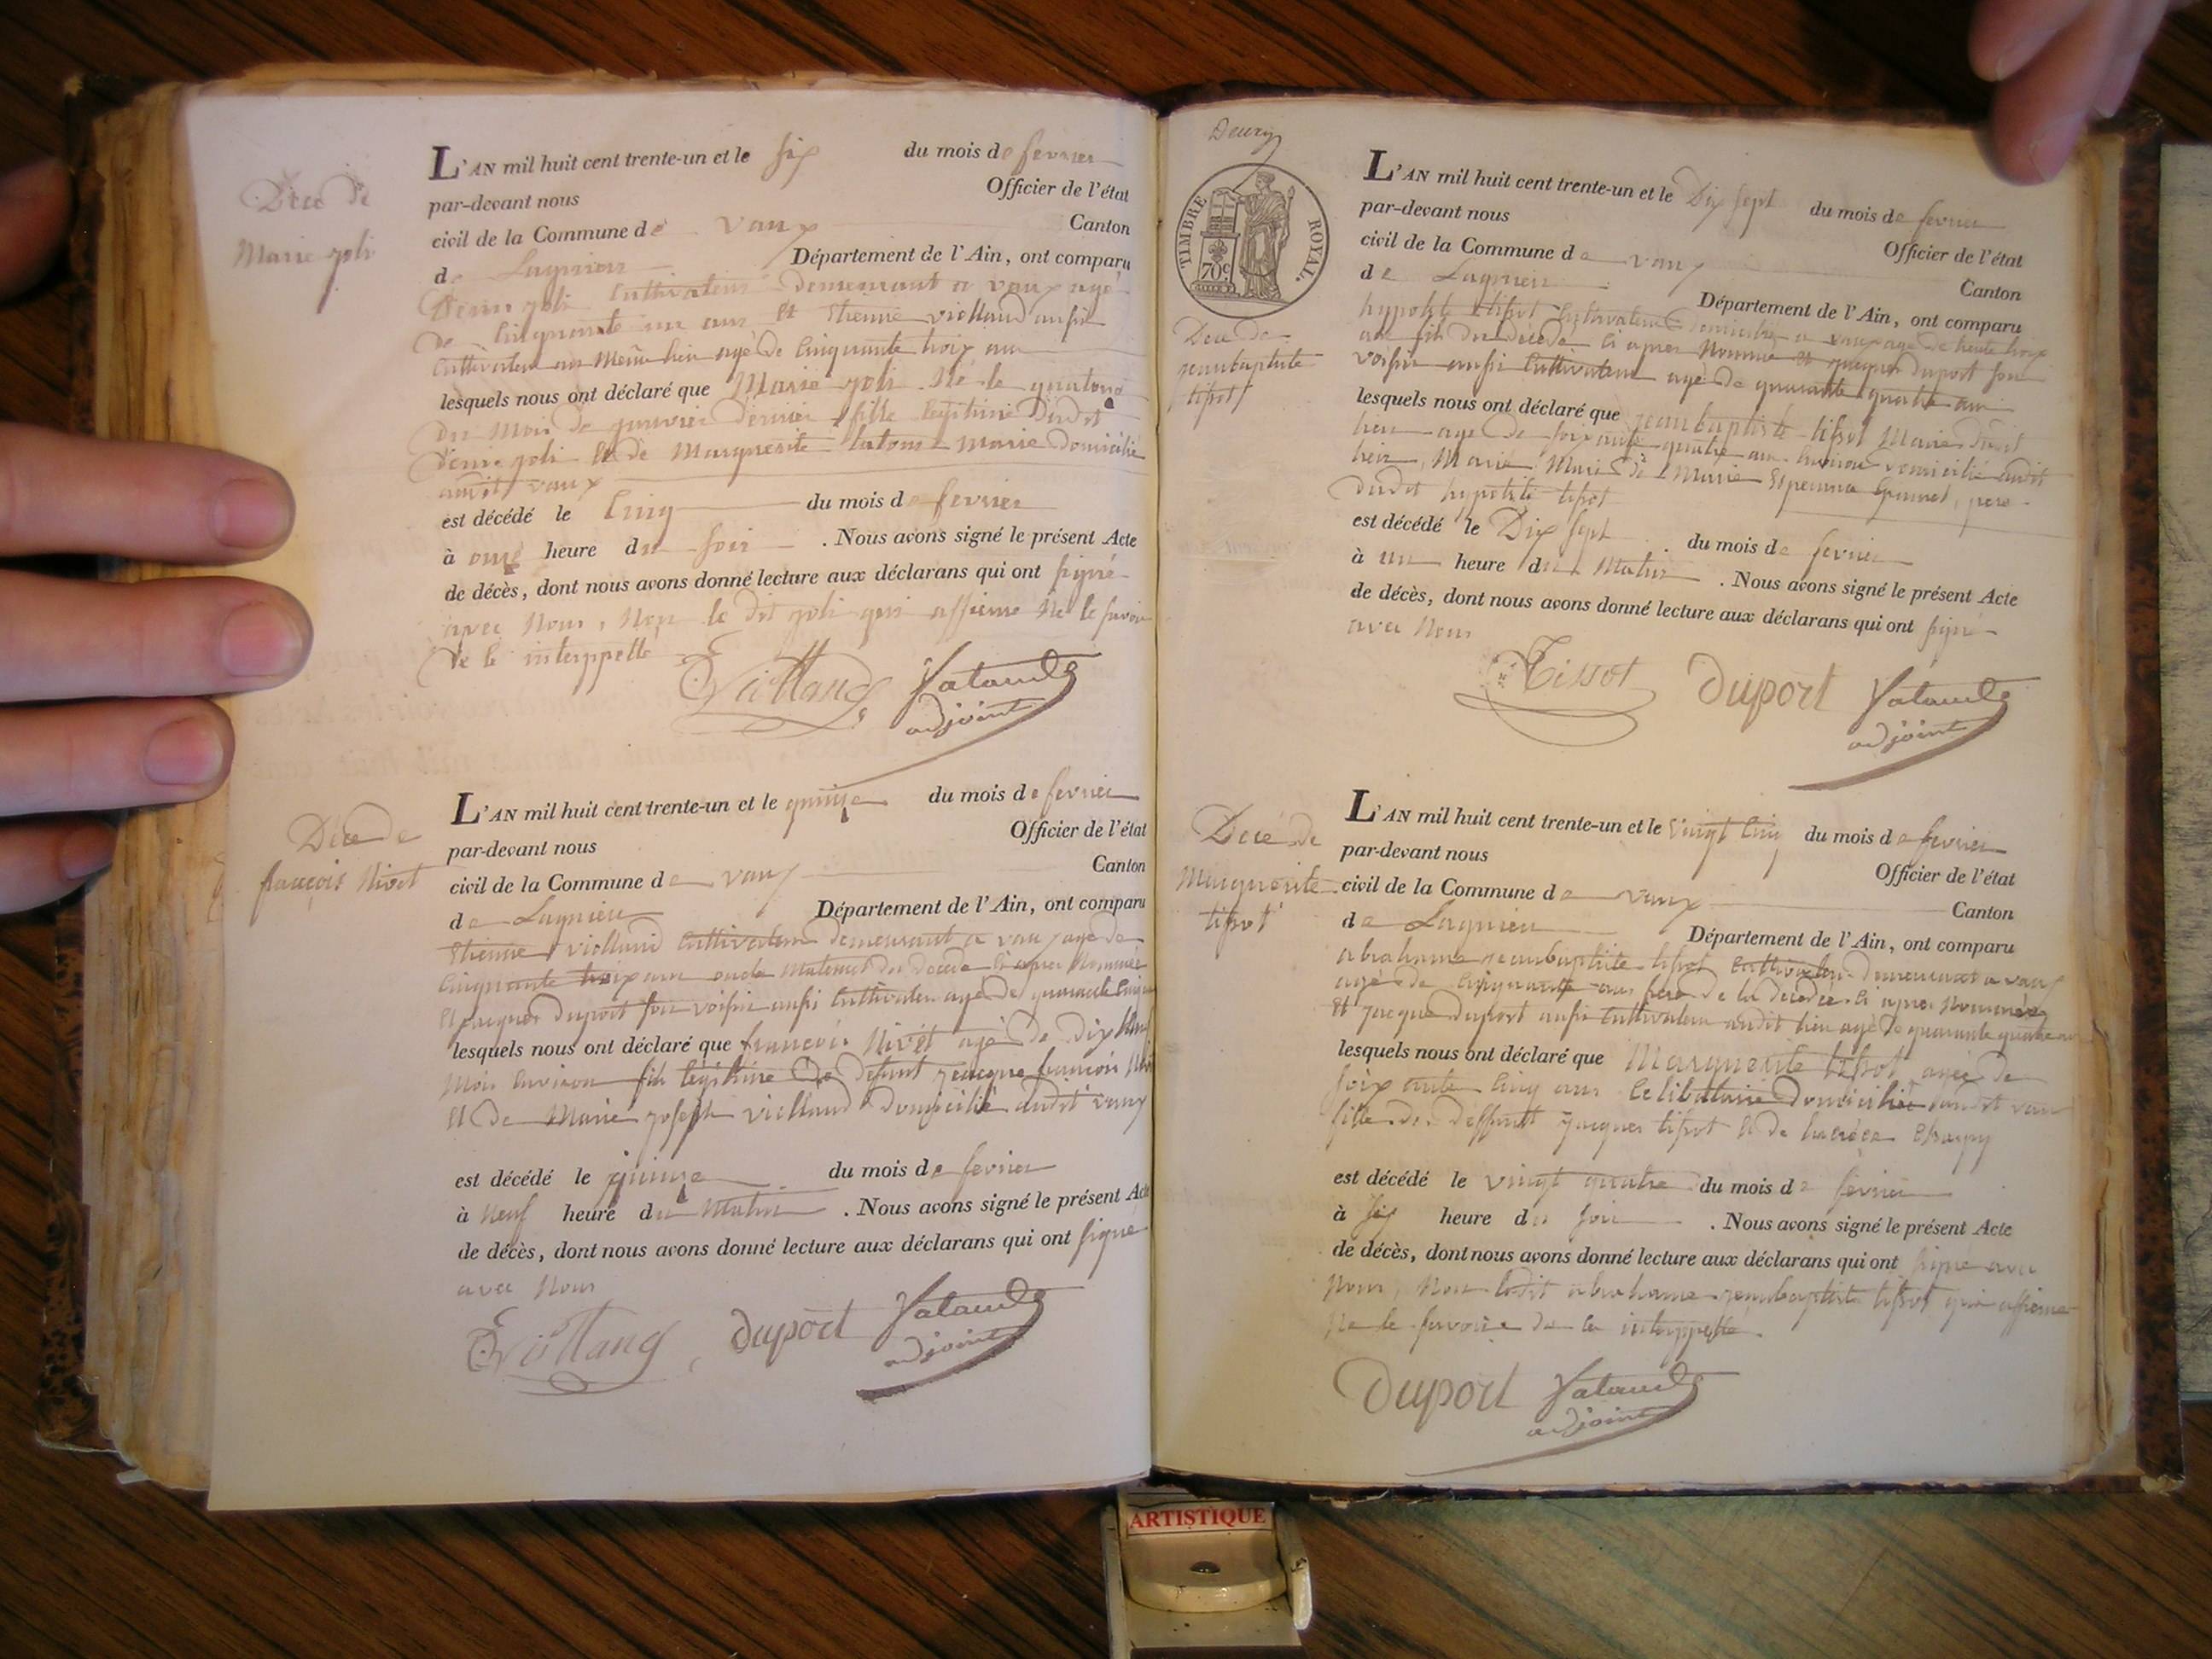 Décé de
Marie joli
L'AN mil huit cent trente-un et le six du mois de fevrier
par-devant nous Officier de l'état
civil de la Commune de vaux Canton
de Lagnieu Département de l'Ain, ont comparu
Denis joli Cultivateur demeurant a vaux agé
de Cinquante un ans et Etienne viollaud aussi
Cultivateur au Meme lieu agé de Cinquante troix ans
lesquels nous ont déclaré que Marie joli Né le quatorze
du Mois de janvier dernier fille legitime dudit
denis joli Et de Marguerite Marie domicilié
audit vaux
est décédé le Cinq du mois de fevrier
à onze heure du soir . Nous avons signé le présent Acte
de décès, dont nous avons donné lecture aux déclarans qui ont signé
avec Nous, Non le dit joli qui affirme Ne le savoir
de ce interppellé
Viollaud Vataud
adjoint
Décé de
françois Nivet
L'AN mil huit cent trente-un et le quinze du mois de fevrier
par-devant nous Officier de l'état
civil de la Commune de vaux Canton
de Lagnieu Département de l'Ain, ont comparu
Etienne viollaud Cultivateur demeurant a vaux agé de
Cinquante troix ans oncle Maternel du décédé Ci apres Nommé
Et jacques duport son voisin aussi Cultivateur agé de quarante
lesquels nous ont déclaré que françois Nivet agé de dix
Mois Environ fils legitime de defunt jeacque francois
Et de Marie joseph viollaud domicilié audit vaux
est décédé le quinze du mois de fevrier
à Neuf heure du Matin . Nous avons signé le présent Acte
de décès, dont nous avons donné lecture aux déclarans qui ont signé
avec Nous
Viollaud duport Vataud
adjoint
TIMBRE ROYAL.
70c
Décé de
jeanbaptiste
tissot
L'AN mil huit cent trente-un et le Dix sept du mois de fevrier
par-devant nous Officier de l'état
civil de la Commune de vaux Canton
de Lagnieu Département de l'Ain, ont comparu
hypolite tissot Cultivateur domicilié a vaux agé de trente troix
ans fils du décédé Ci apres Nommé et jacques duport son
voisin aussi Cultivateur agé de quarante quatre ans
lesquels nous ont déclaré que jeanbaptiste tissot Marié dudit
lieu agé de soixante quatre ans Environ domicilié audit
lieu, Marié Mari de Marie pere
dudit hypolite tissot
est décédé le Dix sept du mois de fevrier
à un heure du Matin . Nous avons signé le présent Acte
de décès, dont nous avons donné lecture aux déclarans qui ont signé
avec Nous
Tissot duport Vataud
adjoint
Décé de
Marguerite
tissot
L'AN mil huit cent trente-un et le vingt Cinq du mois de fevrier
par-devant nous Officier de l'état
civil de la Commune de vaux Canton
de Lagnieu Département de l'Ain, ont comparu
abrahame jeanbaptiste tissot Cultivateur demeurant a vaux
agé de Cinquante ans frere de la décédée Ci apres Nommée
Et jacque duport aussi Cultivateur audit lieu agé de quarante quatre ans
lesquels nous ont déclaré que Marguerite tissot agée de
soixante Cinq ans Celibattaire domicilié audit vaux
fille de deffunt jacques tissot Et de
est décédé le vingt quatre du mois de fevrier
à six heure du soir . Nous avons signé le présent Acte
de décès, dont nous avons donné lecture aux déclarans qui ont signé avec
Nous, Non ledit abrahame jeanbaptiste tissot qui affirme
Ne le savoire de ce interppellé.
duport Vataud
adjoint
ARTISTIQUE